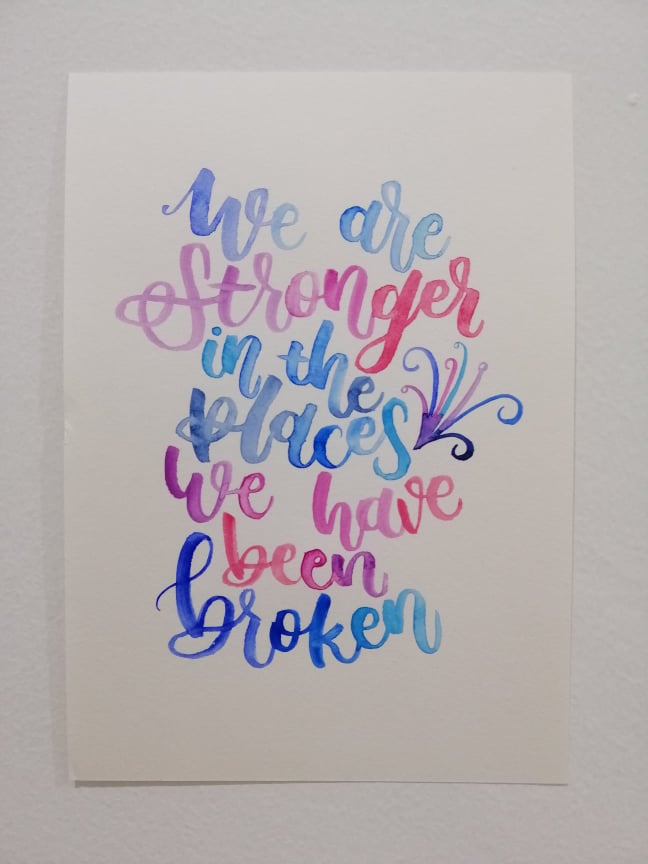 We are
Stronger
in the
places
we have
been
broken